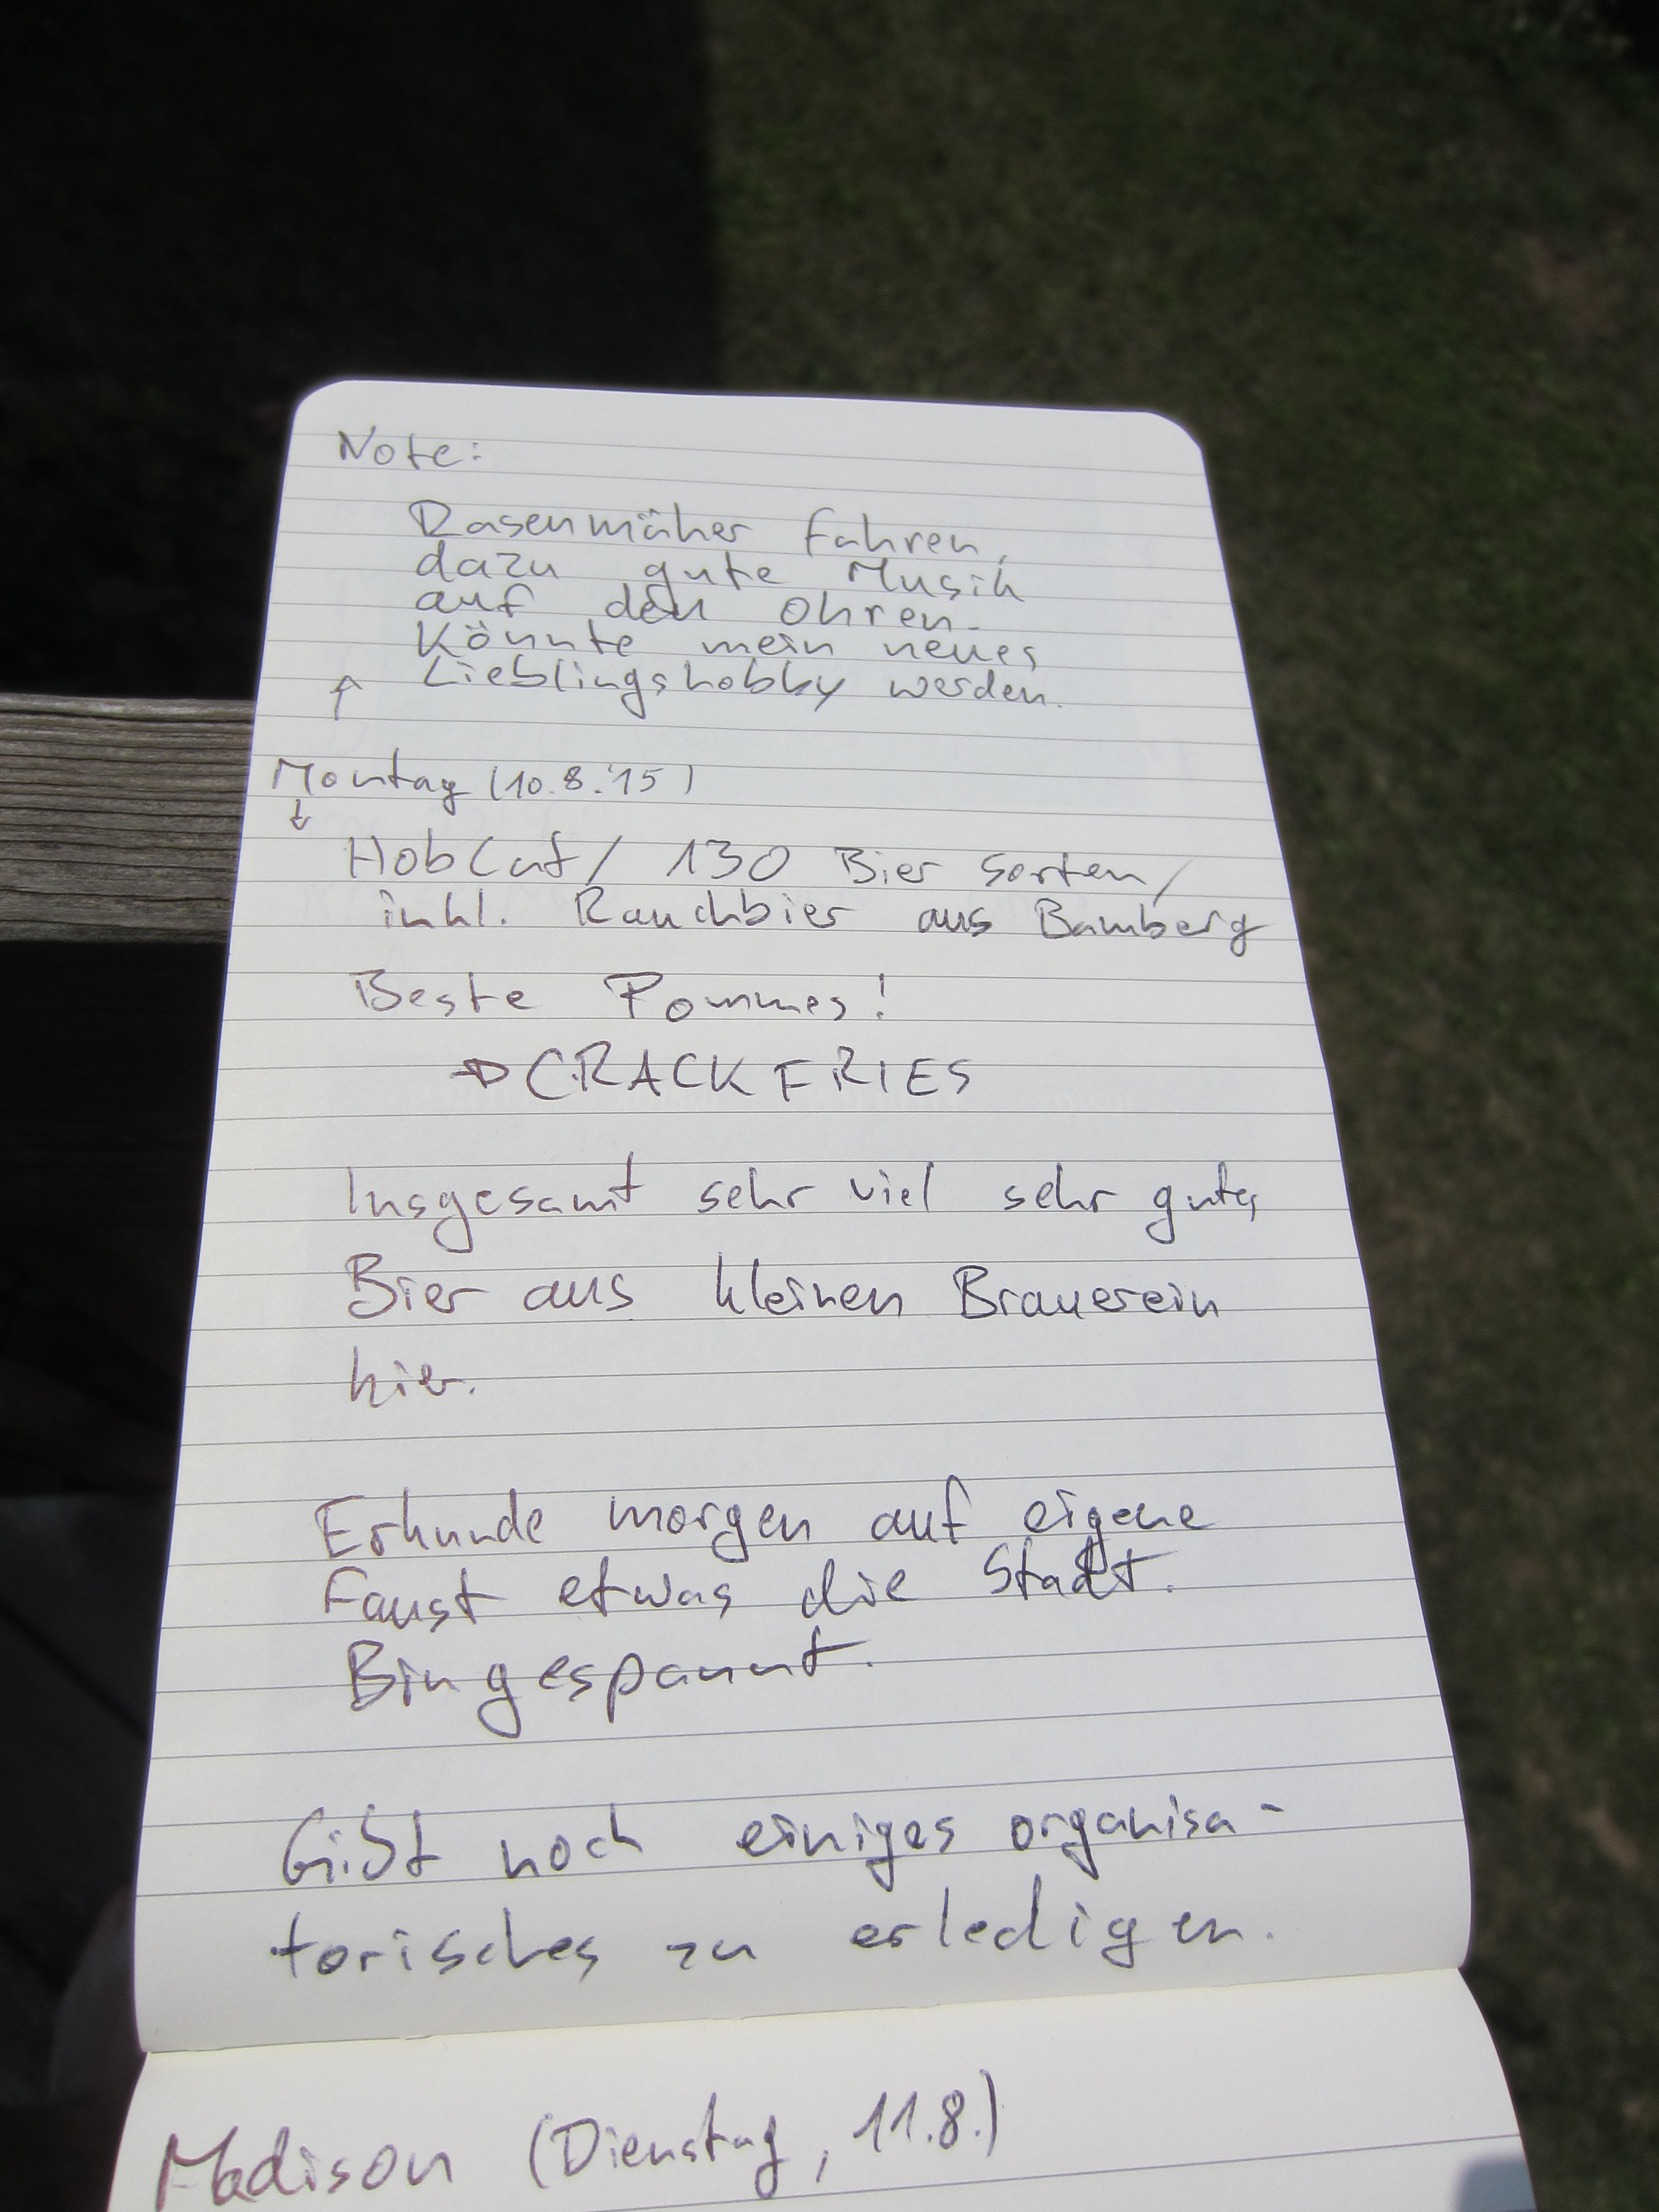 Note:
Rasenmäher fahren,
dazu gute Musik
auf den Ohren.
Könnte mein neues
Lieblingshobby werden.
↑
Montag (10.8.'15)
↓
HobCat / 130 Bier sorten /
inkl. Rauchbier aus Bamberg
Beste Pommes!
→ CRACK FRIES
Insgesamt sehr viel sehr gutes
Bier aus kleinen Brauerein
hier.
Erkunde morgen auf eigene
Faust etwas die Stadt.
Bin gespannt.
Gibt noch einiges organisa-
torisches zu erledigen.
Madison (Dienstag, 11.8.)